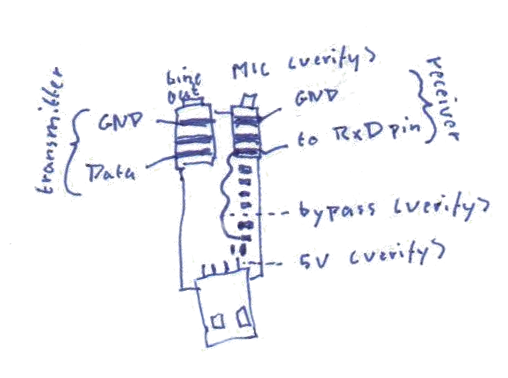 Line out
MIC (verify)
transmitter
GND
Data
GND
to RxD pin
receiver
bypass (verify)
5V (verify)